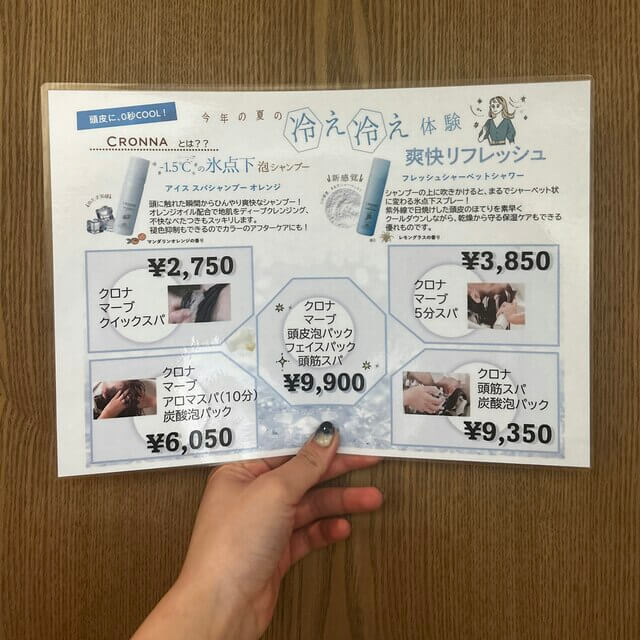 頭皮に、0秒COOL!
今年の夏の冷え冷え体験
CRONNA とは??
-1.5℃の氷点下泡シャンプー
アイス スパシャンプー オレンジ
頭に触れた瞬間からひんやり爽快なシャンプー!
オレンジオイル配合で地肌をディープクレンジング、
不快なべたつきもスッキリします。
褪色抑制もできるのでカラーのアフターケアにも!
マンダリンオレンジの香り
新感覚
爽快リフレッシュ
フレッシュシャーベットシャワー
シャンプーの上に吹きかけると、まるでシャーベット状
に変わる氷点下スプレー!
紫外線で日焼けした頭皮のほてりを素早く
クールダウンしながら、乾燥から守る保湿ケアもできる
優れものです。
レモングラスの香り
¥2,750
クロナ
マーブ
クイックスパ
¥3,850
クロナ
マーブ
5分スパ
クロナ
マーブ
頭皮泡パック
フェイスパック
頭筋スパ
¥9,900
クロナ
マーブ
アロマスパ(10分)
炭酸泡パック
¥6,050
クロナ
頭筋スパ
炭酸泡パック
¥9,350